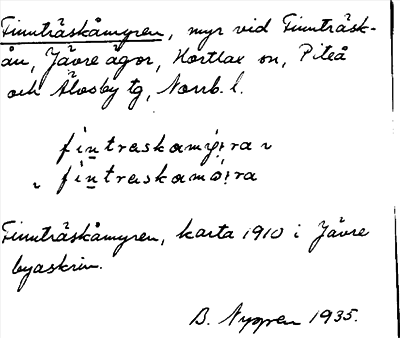 Finnträskåmyren, myr vid Finnträsk-
ån, Jävre ägor, Hortlax sn, Piteå
och Älvsby tg, Norrb. l.
fìn̲traskamy̨:ra ~
~ fìn̲traskamö̜:ra
Finnträskåmyren, karta 1910 i Jävre
byaskrin.
B. Nygren 1935.